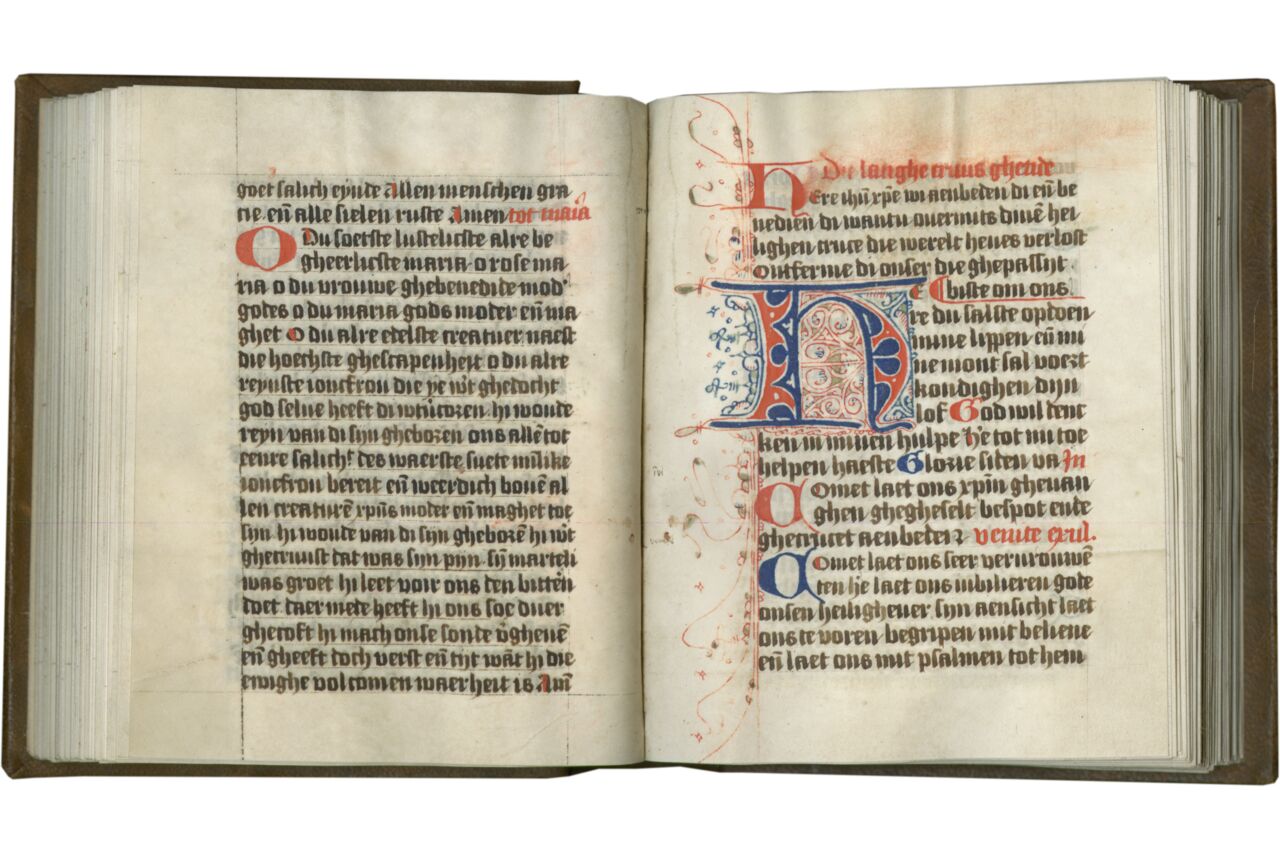 goet salich eynde Allen menschen gra
cie en̄ alle sielen ruste Amen tot maria
O Du soetste lustelicste alre be
gheerlicste maria o rose ma
ria o du vrouwe ghebenedide mod'
godes o du maria gods moder en̄ ma
ghet O du alre edelste creatuer naest
die hoechste ghescapenheit o du alre
reynste ioncfrou die ye wt ghedocht
god selue heeft di wtuercozen hi woude
reyn van di sijn gheboren ons allē tot
eenre salichz des waerste suete milike
ioncfrou bereit en̄ weerdich bouē al
len creaturē xpūs moder en̄ maghet toe
sijn hi woude van di sijn gheborē hi wt
ghecruust dat was sijn pijn sij̄ marteli
was groet hi leet voir ons den bittēn
doet daer mede heeft hi ons soe duer
ghecoft hi mach onse sonde v̄gheuē
en̄ gheeft doch verst en̄ tijt wāt hi die
ewighe volcomen waerheit is Amē
Die langhe cruus ghetide
Here ihū xp̄e wi aenbeden di en̄ be
nedien di wantu ouermits dinē hei
lighen cruce die werelt heues verlost
Ontferme di onser die ghepassijt
biste om ons
He
re du salste opdoen
mine lippen en̄ mi
ne mont sal voert
kondighen dijn
lof God wil denc
ken in minen hulpe he tot mi toe
helpen haeste Glorie siden va In
Comet laet ons xp̄m gheuan
ghen ghegheselt bespot ende
ghecrucet aenbeden venite exul.
Comet laet ons seer vervrouwē
den he laet ons iubilieren gode
onsen heilighever sijn aensicht laet
ons te voren begripen mit beliene
en̄ laet ons mit psalmen tot hem